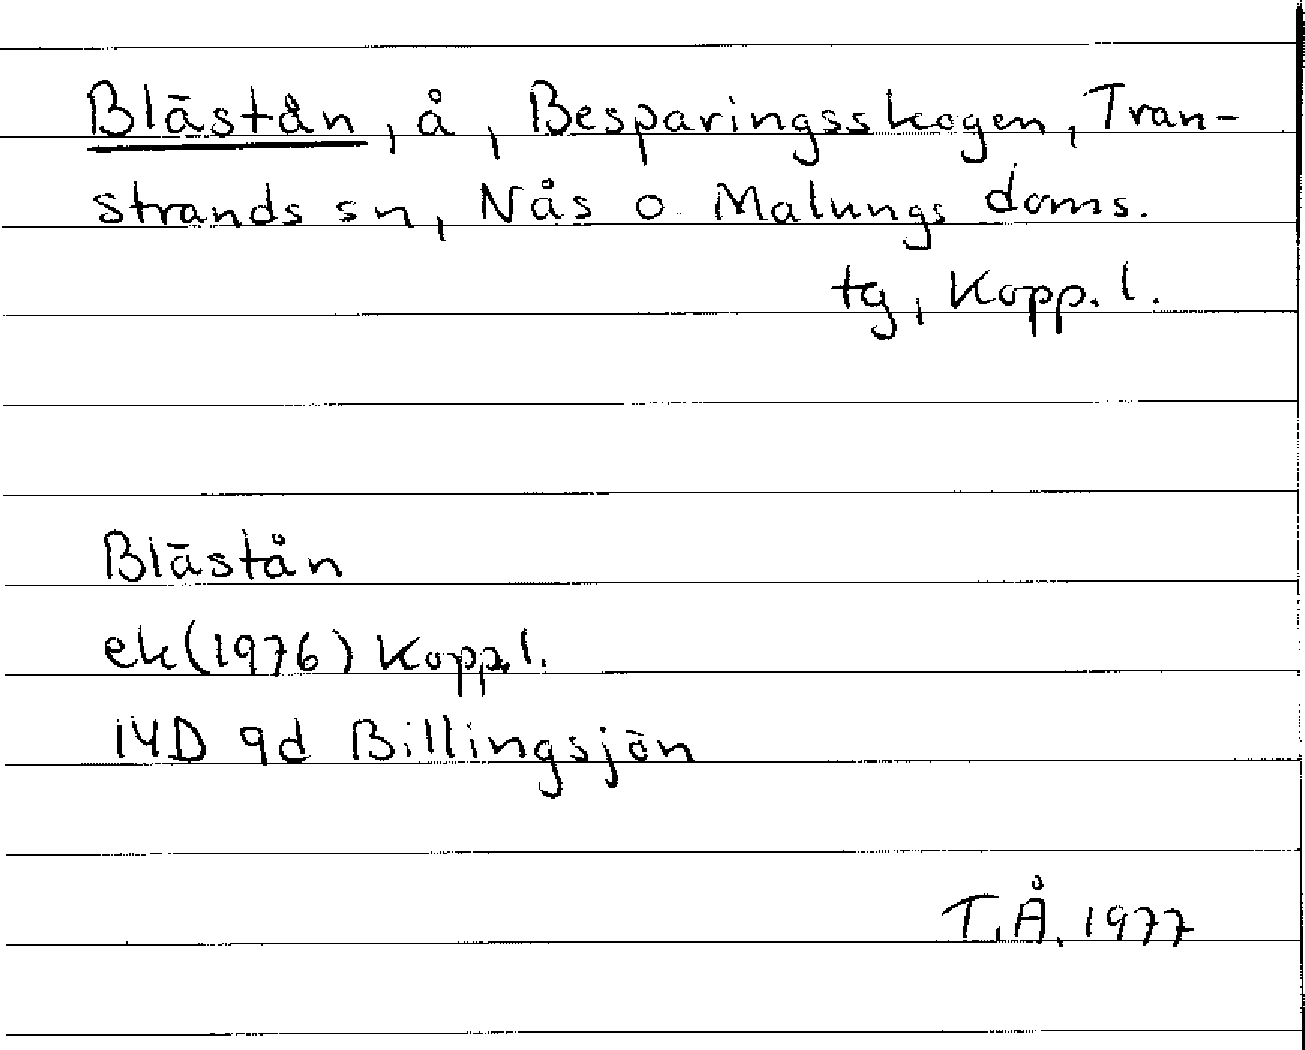 Blästån, å, Besparingsskogen, Tran-
strands sn, Nås o Malungs doms.
tg, Kopp. l.
Blästån
ek (1976) Kopp. l.
14D 9d Billingsjön
T.Å. 1977